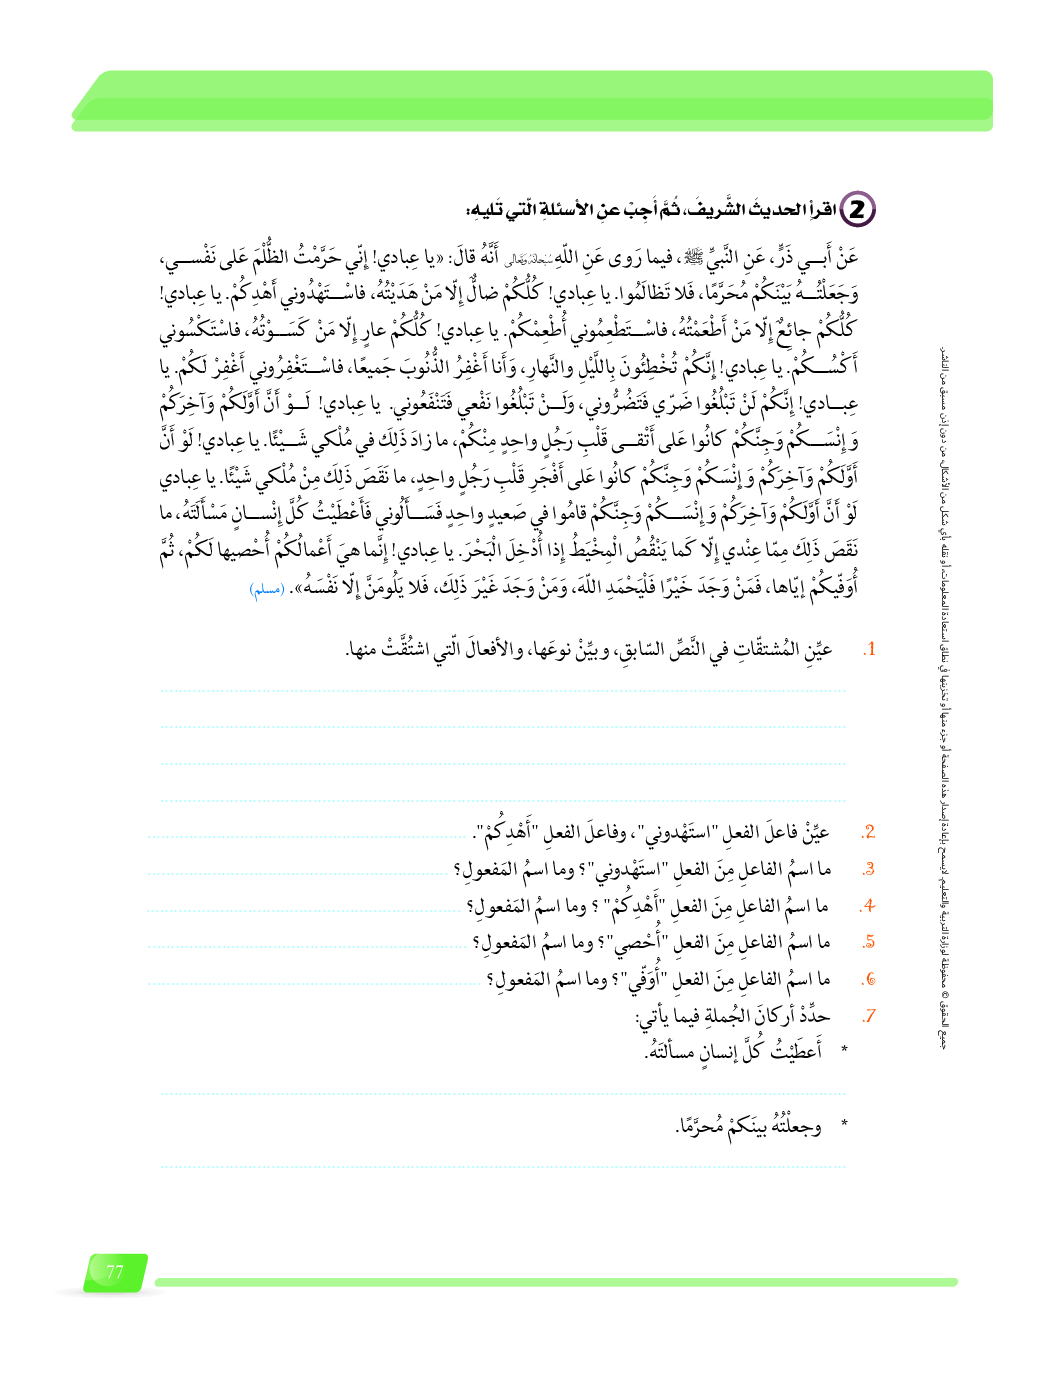 2 اقرأِ الحديثَ الشَّريفَ، ثُمَّ أَجِبْ عنِ الأسئلةِ الّتي تَليهِ:
عَنْ أَبي ذَرٍّ، عَنِ النَّبيِّ ﷺ، فيما رَوى عَنِ اللّهِ سُبْحانَهُ وَتَعالى أَنَّهُ قالَ: «يا عِبادي! إِنّي حَرَّمْتُ الظُّلْمَ عَلى نَفْسي،
وَجَعَلْتُهُ بَيْنَكُمْ مُحَرَّمًا، فَلا تَظالَمُوا. يا عِبادي! كُلُّكُمْ ضالٌّ إِلّا مَنْ هَدَيْتُهُ، فاسْتَهْدُوني أَهْدِكُمْ. يا عِبادي!
كُلُّكُمْ جائِعٌ إِلّا مَنْ أَطْعَمْتُهُ، فاسْتَطْعِمُوني أُطْعِمْكُمْ. يا عِبادي! كُلُّكُمْ عارٍ إِلّا مَنْ كَسَوْتُهُ، فاسْتَكْسُوني
أَكْسُكُمْ. يا عِبادي! إِنَّكُمْ تُخْطِئُونَ بِاللَّيْلِ والنَّهارِ، وَأَنا أَغْفِرُ الذُّنُوبَ جَميعًا، فاسْتَغْفِرُوني أَغْفِرْ لَكُمْ. يا
عِبادي! إِنَّكُمْ لَنْ تَبْلُغُوا ضَرّي فَتَضُرُّوني، وَلَنْ تَبْلُغُوا نَفْعي فَتَنْفَعُوني. يا عِبادي! لَوْ أَنَّ أَوَّلَكُمْ وَآخِرَكُمْ
وَإِنْسَكُمْ وَجِنَّكُمْ كانُوا عَلى أَتْقى قَلْبِ رَجُلٍ واحِدٍ مِنْكُمْ، ما زادَ ذَلِكَ في مُلْكي شَيْئًا. يا عِبادي! لَوْ أَنَّ
أَوَّلَكُمْ وَآخِرَكُمْ وَإِنْسَكُمْ وَجِنَّكُمْ كانُوا عَلى أَفْجَرِ قَلْبِ رَجُلٍ واحِدٍ، ما نَقَصَ ذَلِكَ مِنْ مُلْكي شَيْئًا. يا عِبادي
لَوْ أَنَّ أَوَّلَكُمْ وَآخِرَكُمْ وَإِنْسَكُمْ وَجِنَّكُمْ قامُوا في صَعيدٍ واحِدٍ فَسَأَلُوني فَأَعْطَيْتُ كُلَّ إِنْسانٍ مَسْأَلَتَهُ، ما
نَقَصَ ذَلِكَ مِمّا عِنْدي إِلّا كَما يَنْقُصُ الْمِخْيَطُ إِذا أُدْخِلَ الْبَحْرَ. يا عِبادي! إِنَّما هيَ أَعْمالُكُمْ أُحْصيها لَكُمْ، ثُمَّ
أُوَفّيكُمْ إِيّاها، فَمَنْ وَجَدَ خَيْرًا فَلْيَحْمَدِ اللّهَ، وَمَنْ وَجَدَ غَيْرَ ذَلِكَ، فَلا يَلُومَنَّ إِلّا نَفْسَهُ». (مسلم)
1. عيِّنِ المُشتقّاتِ في النَّصِّ السّابقِ، وبيِّنْ نوعَها، والأفعالَ الّتي اشتُقَّتْ منها.
2. عيِّنْ فاعلَ الفعلِ "استَهْدوني"، وفاعلَ الفعلِ "أَهْدِكُمْ".
3. ما اسمُ الفاعلِ مِنَ الفعلِ "استَهْدوني"؟ وما اسمُ المَفعولِ؟
4. ما اسمُ الفاعلِ مِنَ الفعلِ "أَهْدِكُمْ" ؟ وما اسمُ المَفعولِ؟
5. ما اسمُ الفاعلِ مِنَ الفعلِ "أُحْصي"؟ وما اسمُ المَفعولِ؟
6. ما اسمُ الفاعلِ مِنَ الفعلِ "أُوَفّي"؟ وما اسمُ المَفعولِ؟
7. حدِّدْ أركانَ الجُملةِ فيما يأتي:
* أَعطَيْتُ كُلَّ إنسانٍ مسألتَهُ.
* وجعلْتُهُ بينَكمْ مُحرَّمًا.
77
جميع الحقوق © محفوظة لوزارة التربية والتعليم. لايسمح بإعادة إصدار هذه الصفحة أو جزء منها أو تخزينها في نطاق استعادة المعلومات أو نقله بأي شكل من الأشكال، من دون إذن مسبق من الناشر.